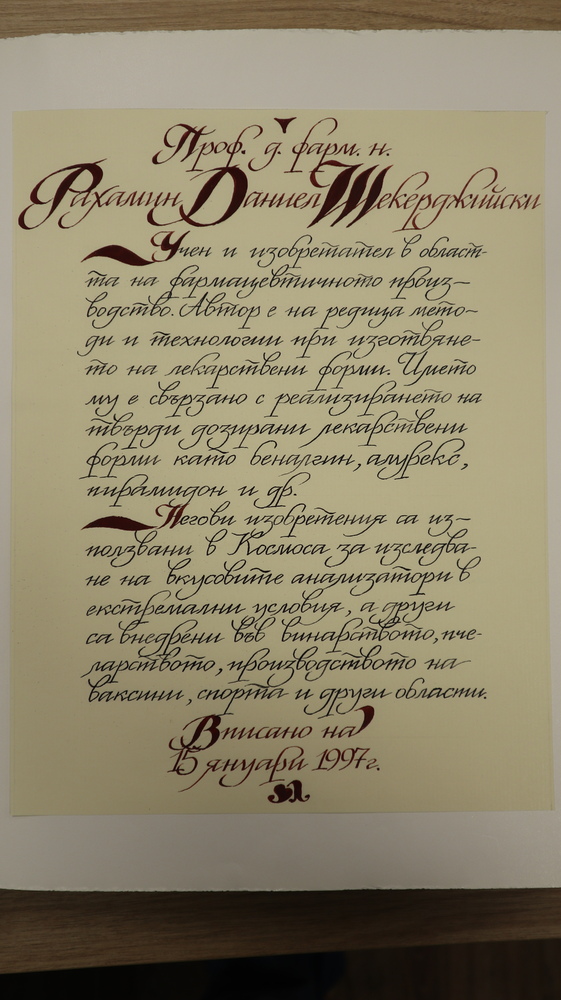 Проф. д. фарм. н.
Рахамин Даниел Шекерджийски
Учен и изобретател в област-
та на фармацевтичното произ-
водство. Автор е на редица мето-
ди и технологии при изготвяне-
то на лекарствени форми. Името
му е свързано с реализирането на
твърди дозирани лекарствени
форми като беналгин, алурекс,
пирамидон и др.
Негови изобретения са из-
ползвани в Космоса за изследва-
не на вкусовите анализатори в
екстремални условия, а други
са внедрени във винарството, пче-
ларството, производството на
ваксини, спорта и други области.
Вписано на
15 януари 1997г.